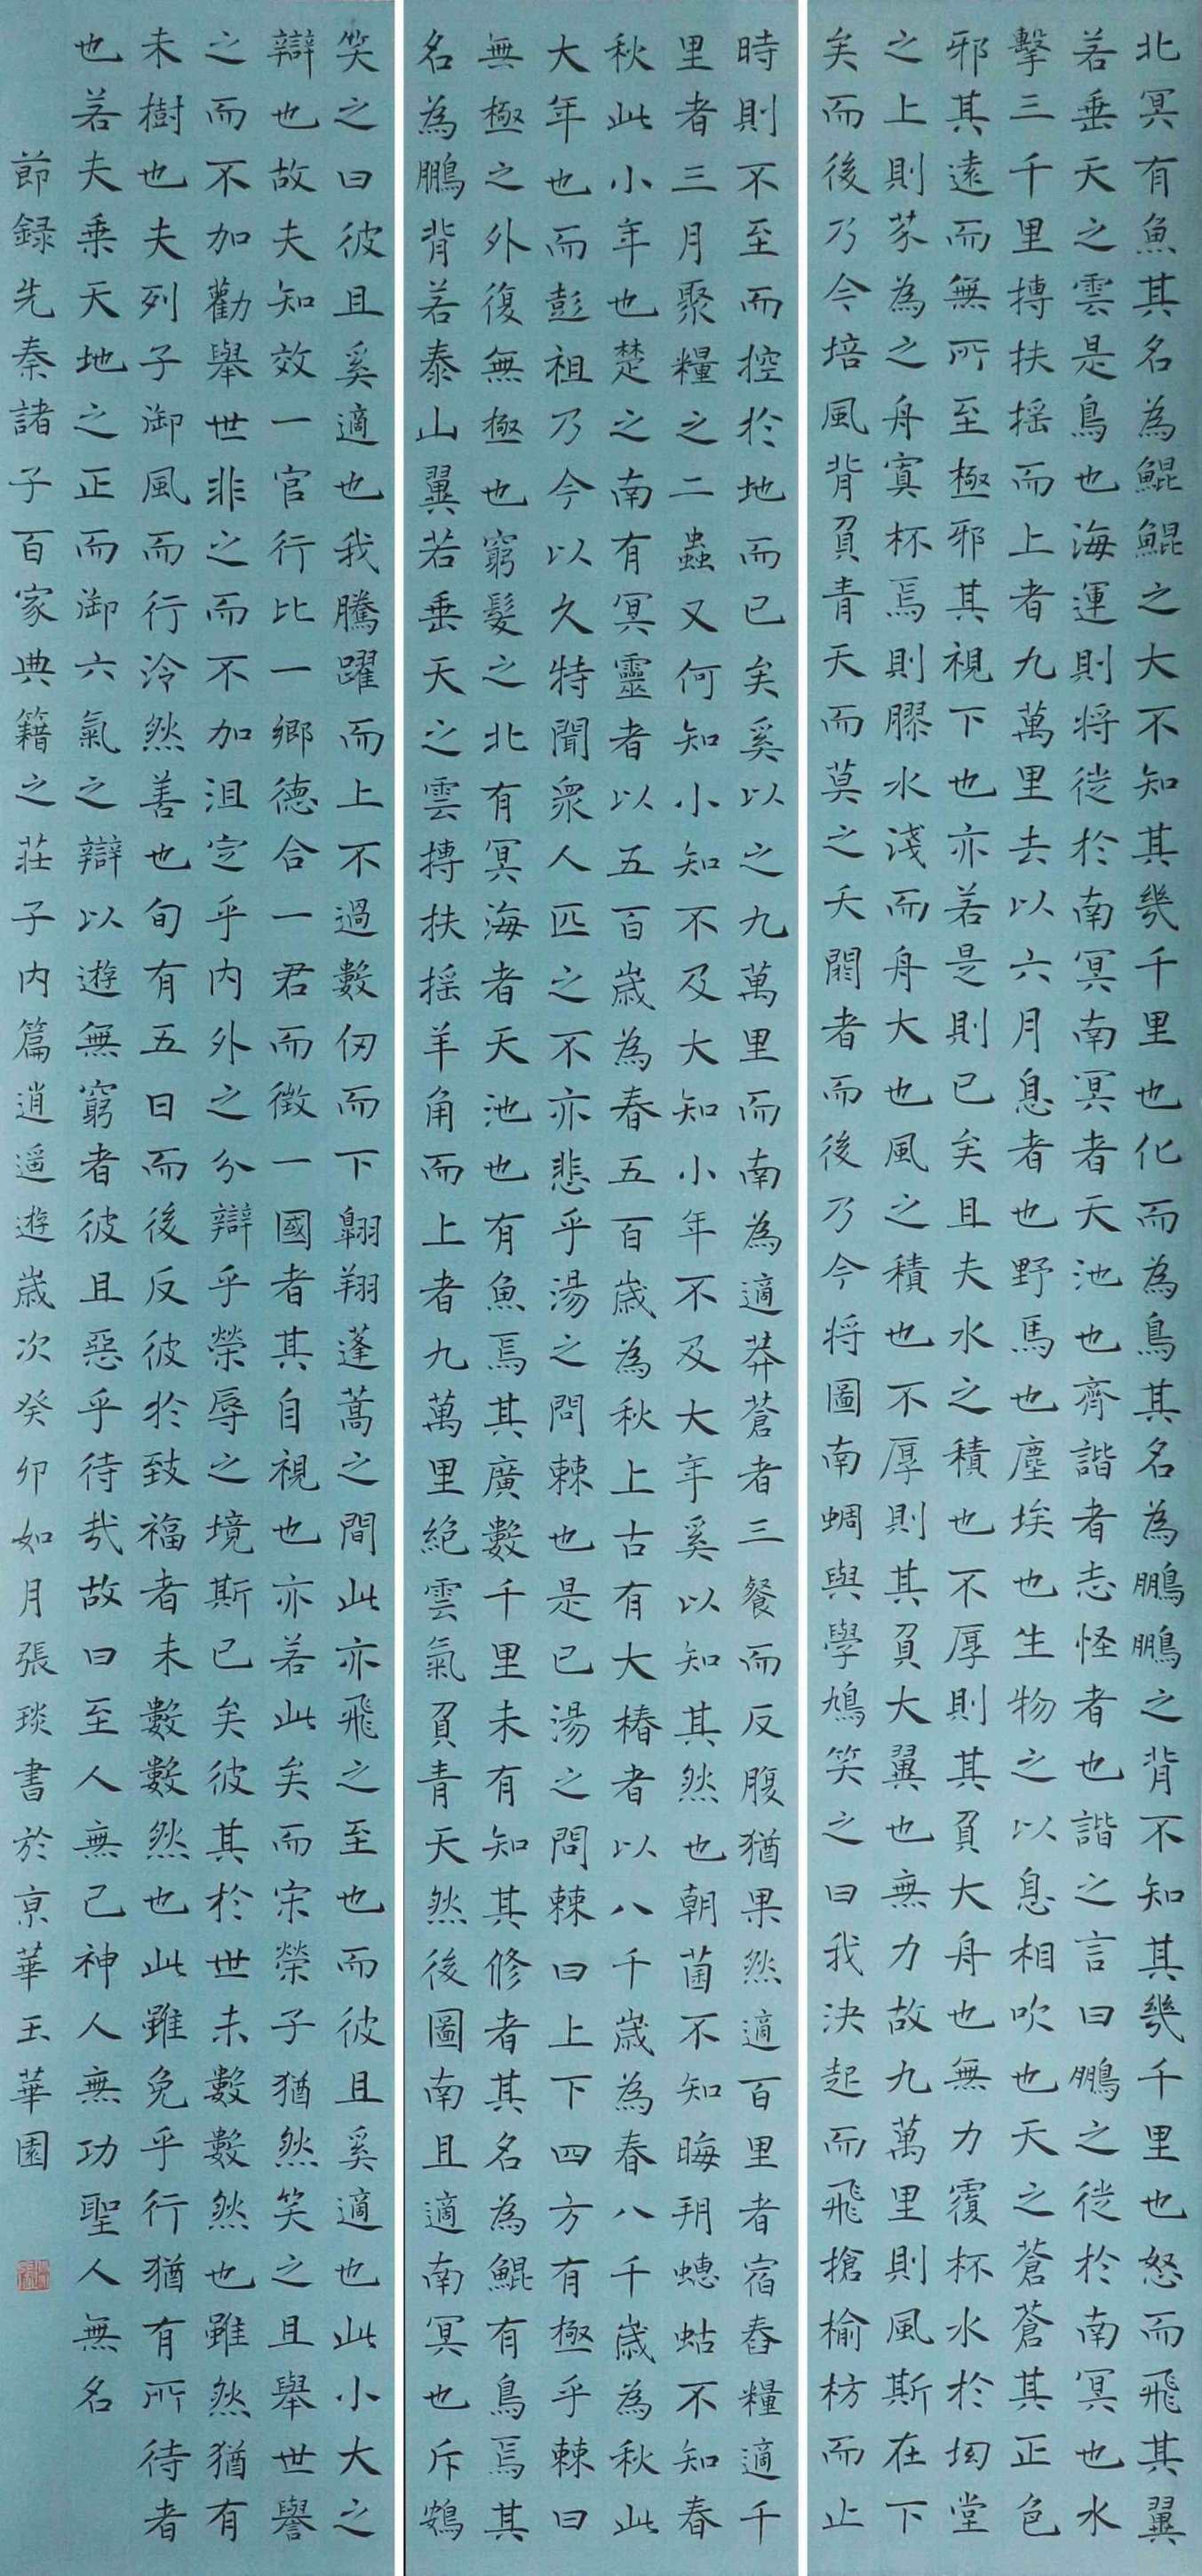 北冥有魚其名為鯤鯤之大不知其幾千里也化而為鳥其名為鵬鵬之背不知其幾千里也怒而飛其翼
若垂天之雲是鳥也海運則將徙於南冥南冥者天池也齊諧者志怪者也諧之言曰鵬之徙於南冥也水
擊三千里摶扶搖而上者九萬里去以六月息者也野馬也塵埃也生物之以息相吹也天之蒼蒼其正色
邪其遠而無所至極邪其視下也亦若是則已矣且夫水之積也不厚則其負大舟也無力覆杯水於坳堂
之上則芥為之舟寘杯焉則膠水淺而舟大也風之積也不厚則其負大翼也無力故九萬里則風斯在下
矣而後乃今培風背負青天而莫之夭閼者而後乃今將圖南蜩與學鳩笑之曰我決起而飛搶榆枋而止
時則不至而控於地而已矣奚以之九萬里而南為適莽蒼者三餐而反腹猶果然適百里者宿舂糧適千
里者三月聚糧之二蟲又何知小知不及大知小年不及大年奚以知其然也朝菌不知晦朔蟪蛄不知春
秋此小年也楚之南有冥靈者以五百歲為春五百歲為秋上古有大椿者以八千歲為春八千歲為秋此
大年也而彭祖乃今以久特聞眾人匹之不亦悲乎湯之問棘也是已湯之問棘曰上下四方有極乎棘曰
無極之外復無極也窮髮之北有冥海者天池也有魚焉其廣數千里未有知其修者其名為鯤有鳥焉其
名為鵬背若泰山翼若垂天之雲摶扶搖羊角而上者九萬里絕雲氣負青天然後圖南且適南冥也斥鴳
笑之曰彼且奚適也我騰躍而上不過數仞而下翱翔蓬蒿之間此亦飛之至也而彼且奚適也此小大之
辯也故夫知效一官行比一鄉德合一君而徵一國者其自視也亦若此矣而宋榮子猶然笑之且舉世譽
之而不加勸舉世非之而不加沮定乎內外之分辯乎榮辱之境斯已矣彼其於世未數數然也雖然猶有
未樹也夫列子御風而行泠然善也旬有五日而後反彼於致福者未數數然也此雖免乎行猶有所待者
也若夫乘天地之正而御六氣之辯以遊無窮者彼且惡乎待哉故曰至人無己神人無功聖人無名
節録先秦諸子百家典籍之莊子內篇逍遥遊歲次癸卯如月張琰書於京華玉華園